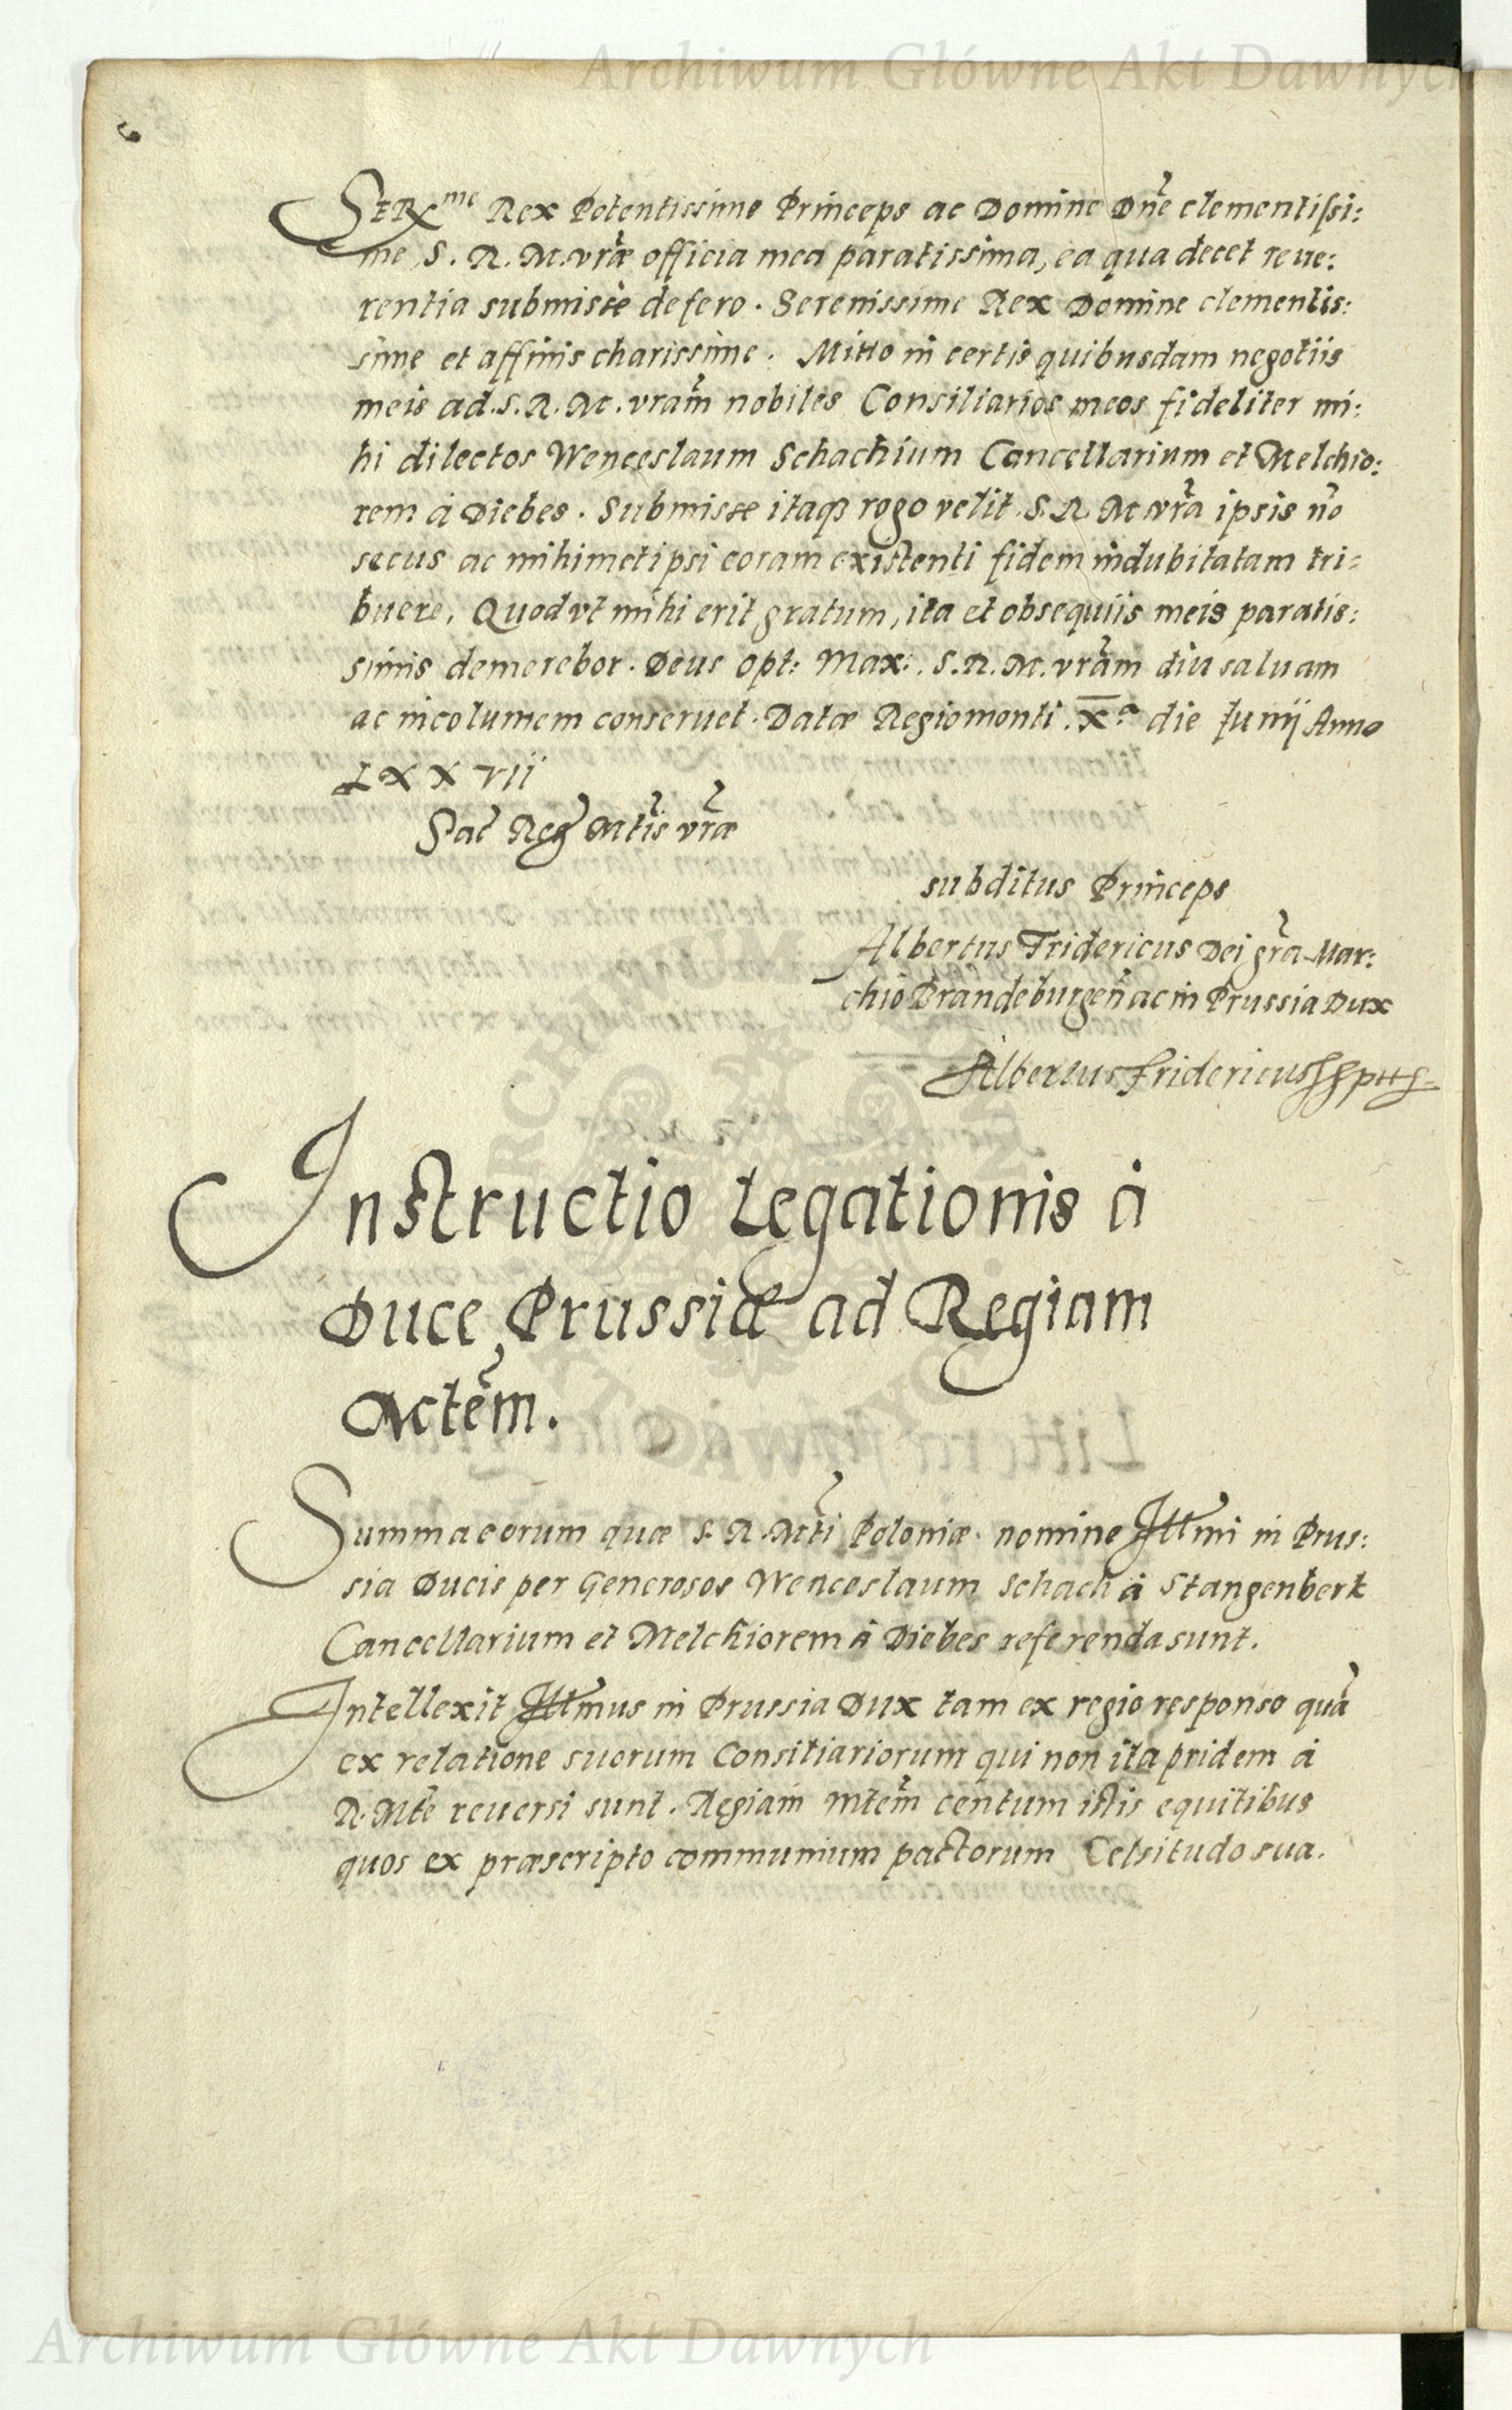 Archiwum Główne Akt Dawnych
6
Serme Rex Potentissime Princeps ac Domine Dne clementissi:
me S. R. M. vræ officia mea paratissima, ea qua decet reue:
rentia submisse defero. Serenissime Rex Domine clementis:
sime et affinis charissime. Mitto in certis quibusdam negotiis
meis ad. S. R. M. vram nobiles Consiliarios meos fideliter mi:
hi dilectos Wenceslaum Schachium Cancellarium et Melchio:
rem à Diebes. Submisse itaq rogo velit. S. R. M. vra ipsis no
secus ac mihimetipsi coram existenti fidem indubitatam tri=
buere. Quod vt mihi erit gratum, ita et obsequiis meis paratis:
simis demerebor. Deus opt: Max:. S. R. M. vram diu saluam
ac incolumem conseruet. Datæ Regiomonti. Xa die Junij Anno
LXXVII
Sac Reg Mtis vræ
subditus Princeps
Albertus Fridericus Dei gra Mar:
chio Brandeburgen ac in Prussia Dux
Albertus Fridericus
Instructio Legationis à
Duce Prussiæ ad Regiam
Mctem.
Summa eorum quæ S. R. Mcti Poloniæ nomine Illmi in Prus:
sia Ducis per Generosos Wenceslaum Schach à Stangenberk
Cancellarium et Melchiorem à Diebes referenda sunt.
Intellexit Illmus in Prussia Dux tam ex regio responso qua
ex relatione suorum Consiliariorum qui non ita pridem à
R. Mte reuersi sunt. Regiam Mtem centum istis equitibus
quos ex præscripto communium pactorum Celsitudo sua.
Archiwum Główne Akt Dawnych